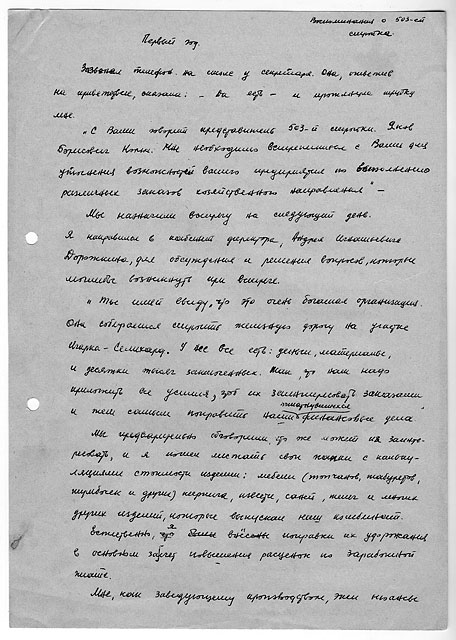 Воспоминания о 503-ей
стройке.
Первый год.
Зазвонил телефон на столе у секретаря. Она, ответив
на приветствие, сказала: – Да есть – и протянула трубку
мне.
„С Вами говорит представитель 503-й стройки. Яков
Борисович Коган. Мне необходимо встретиться с Вами для
уточнения возможностей вашего предприятия по выполнению
различных заказов хозяйственного направления" –
Мы назначили встречу на следующий день.
Я направился в кабинет директора, Андрея Игнатьевича
для обсуждения и решения вопросов, которые
могли бы возникнуть при встрече.
„Ты имей ввиду, что это очень богатая организация.
Она собирается строить железную дорогу на участке
Игарка – Салехард. У нее все есть: деньги, материалы,
и десятки тысяч заключенных. Нам надо
приложить все усилия, чтоб их заинтересовать заказами
и тем самым поправить наши финансовые дела
Мы предварительно обговорили, что же может их заинте-
ресовать, и я пошел листать свои папки с кальку-
ляциями стоимости изделий: мебели (топчанов, табуретов,
тумбочек и других) кирпича, извести, саней, телег и многих
других изделий, которые выпускал наш комбинат.
Естественно, что я поправки их удорожания
в основном за счет повышения расценок по заработной
плате.
Мне, как заведующему производством, тем